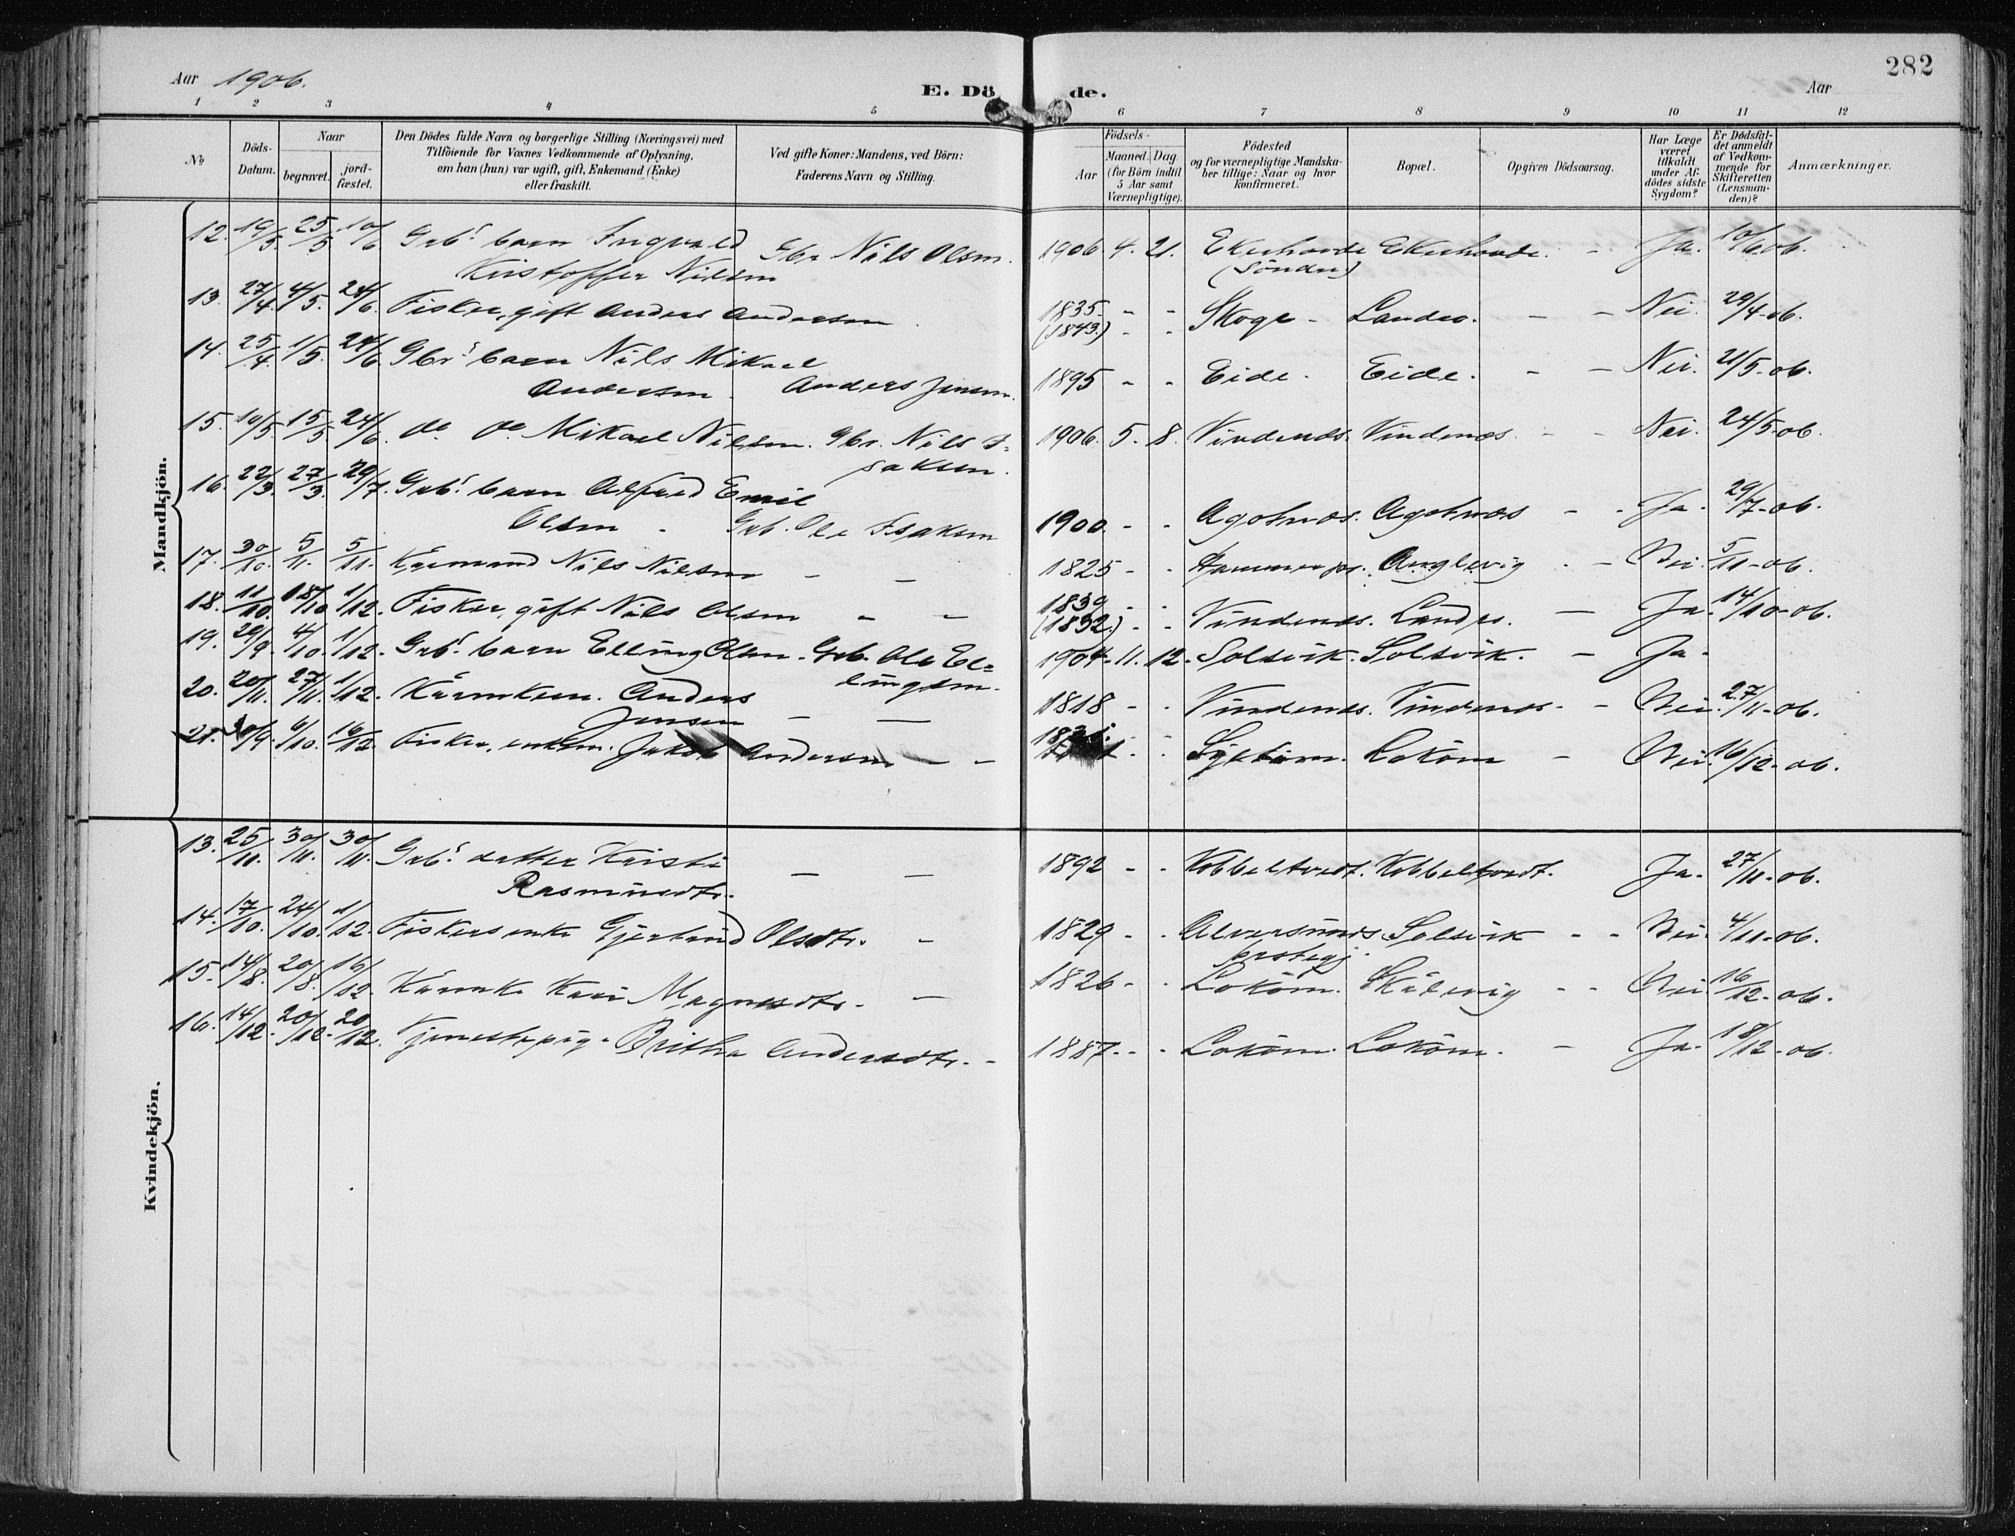 282
Aar 1906.
E. Dö de.
Aar
1 2 3 4 5 6 7 8 9 10 11 12
No
Döds-Datum.
Naar
begravet.
jord-fæstet.
Den Dödes fulde Navn og borgerlige Stilling (Næringsvei) med
Tilföiende for Voxnes Vedkommende af Oplysning,
om han (hun) var ugift, gift, Enkemand (Enke)
eller fraskilt.
Ved gifte Koner: Mandens, ved Börn:
Faderens Navn og Stilling.
Födsels-
Aar
Maaned. Dag
(for Börn indtil
5 Aar samt
Værnepligtige).
Födested
og for værnepligtige Mandska-
ber tillige: Naar og hvor
konfirmeret.
Bopæl.
Opgiven Dödsaarsag.
Har Læge
været
tilkaldt
under Af-
dödes sidste
Sygdom?
Er Dödsfal-
det anmeldt
af Vedkom-
mende for
Skifteretten
(Lensman-
den)?
Anmærkninger.
Mandkjön.
12. 19/5 25/5 10/6 Grbr barn Ingvald Gbr Nils Olsen. 1906. 4. 21. Ekerhovde Ekerhovde. - Ja. 10/6 06.
Kristoffer Nilsen (Söndre)
13. 27/4. 4/5. 24/6. Fisker, gift Anders Andersen 1835. - - Skoge - Landro. - - Nei. 29/4-06.
(1843.) - -
14. 25/4. 1/5. 24/6 Gbrs barn Nils Mikael 1895 - - Eide. Eide. - - Nei. 21/5-06.
Andersen. Anders Jensen.
15. 10/5 15/5 24/6. do do Mikael Nilsen. Gbr. Nils I- 1906. 5. 8. Vindenes. Vindenes. - - Nei. 24/5-06.
saksen.
16. 22/3. 27/3. 29/7. Grbs. barn Alfred Emil
Olsen - Grb. Ole Isaksen 1900. - - Agotnæs. Agotnæs - - Ja. 29/7-06.
17. 30/10. 5/11. 5/11. Nils Nilsen - - 1825 - - Hammer pr. Anglevig - Nei. 5/11-06.
18. 11/10. 18/10. 1/12. Fisker, gift Nils Olsen - - 1839 Vindenes. Landro. - Ja. 14/10-06.
(1832.) - -
19. 29/9. 4/10. 1/12. Grbs. barn Elling Olsen. Grb. Ole El- 1904. 11. 12. Solsvik. Solsvik. - Ja.
lingsen.
20. 20/11. 27/11. 1/12. Kårmken. Anders 1818 - - Vindenes. Vindenes. - Nei. 27/11-06.
Jensen - -
21. 30/9. 6/10. 16/12. Fisker, enkem. Jakob Andersen - - Lokøen - Nei. 16/12-06.
Kvindekjön.
13. 25/11. 30/11. 30/11. Grbs. datter Kristi - - 1892 - - Kobbeltvedt. Kobbeltvedt. Ja. 27/11-06.
Rasmusdtr.
14. 17/10. 24/10. 1/12. Fiskers enke Gjertrud Olsdtr. - 1829 - - Alversunds Solsvik - - Nei. 4/11-06.
prstegj.
15. 14/8. 20/8. 16/12. Kårmke Kari Magnesdtr. - 1826 - - Lokøen. Skålevig - - Nei. 16/12-06.
16. 14/12. 20/12. 20/12. Tjenestepig. Britha Andersdtr. - 1887. - - Lokøen. Lokøen. - Ja. 18/12-06.